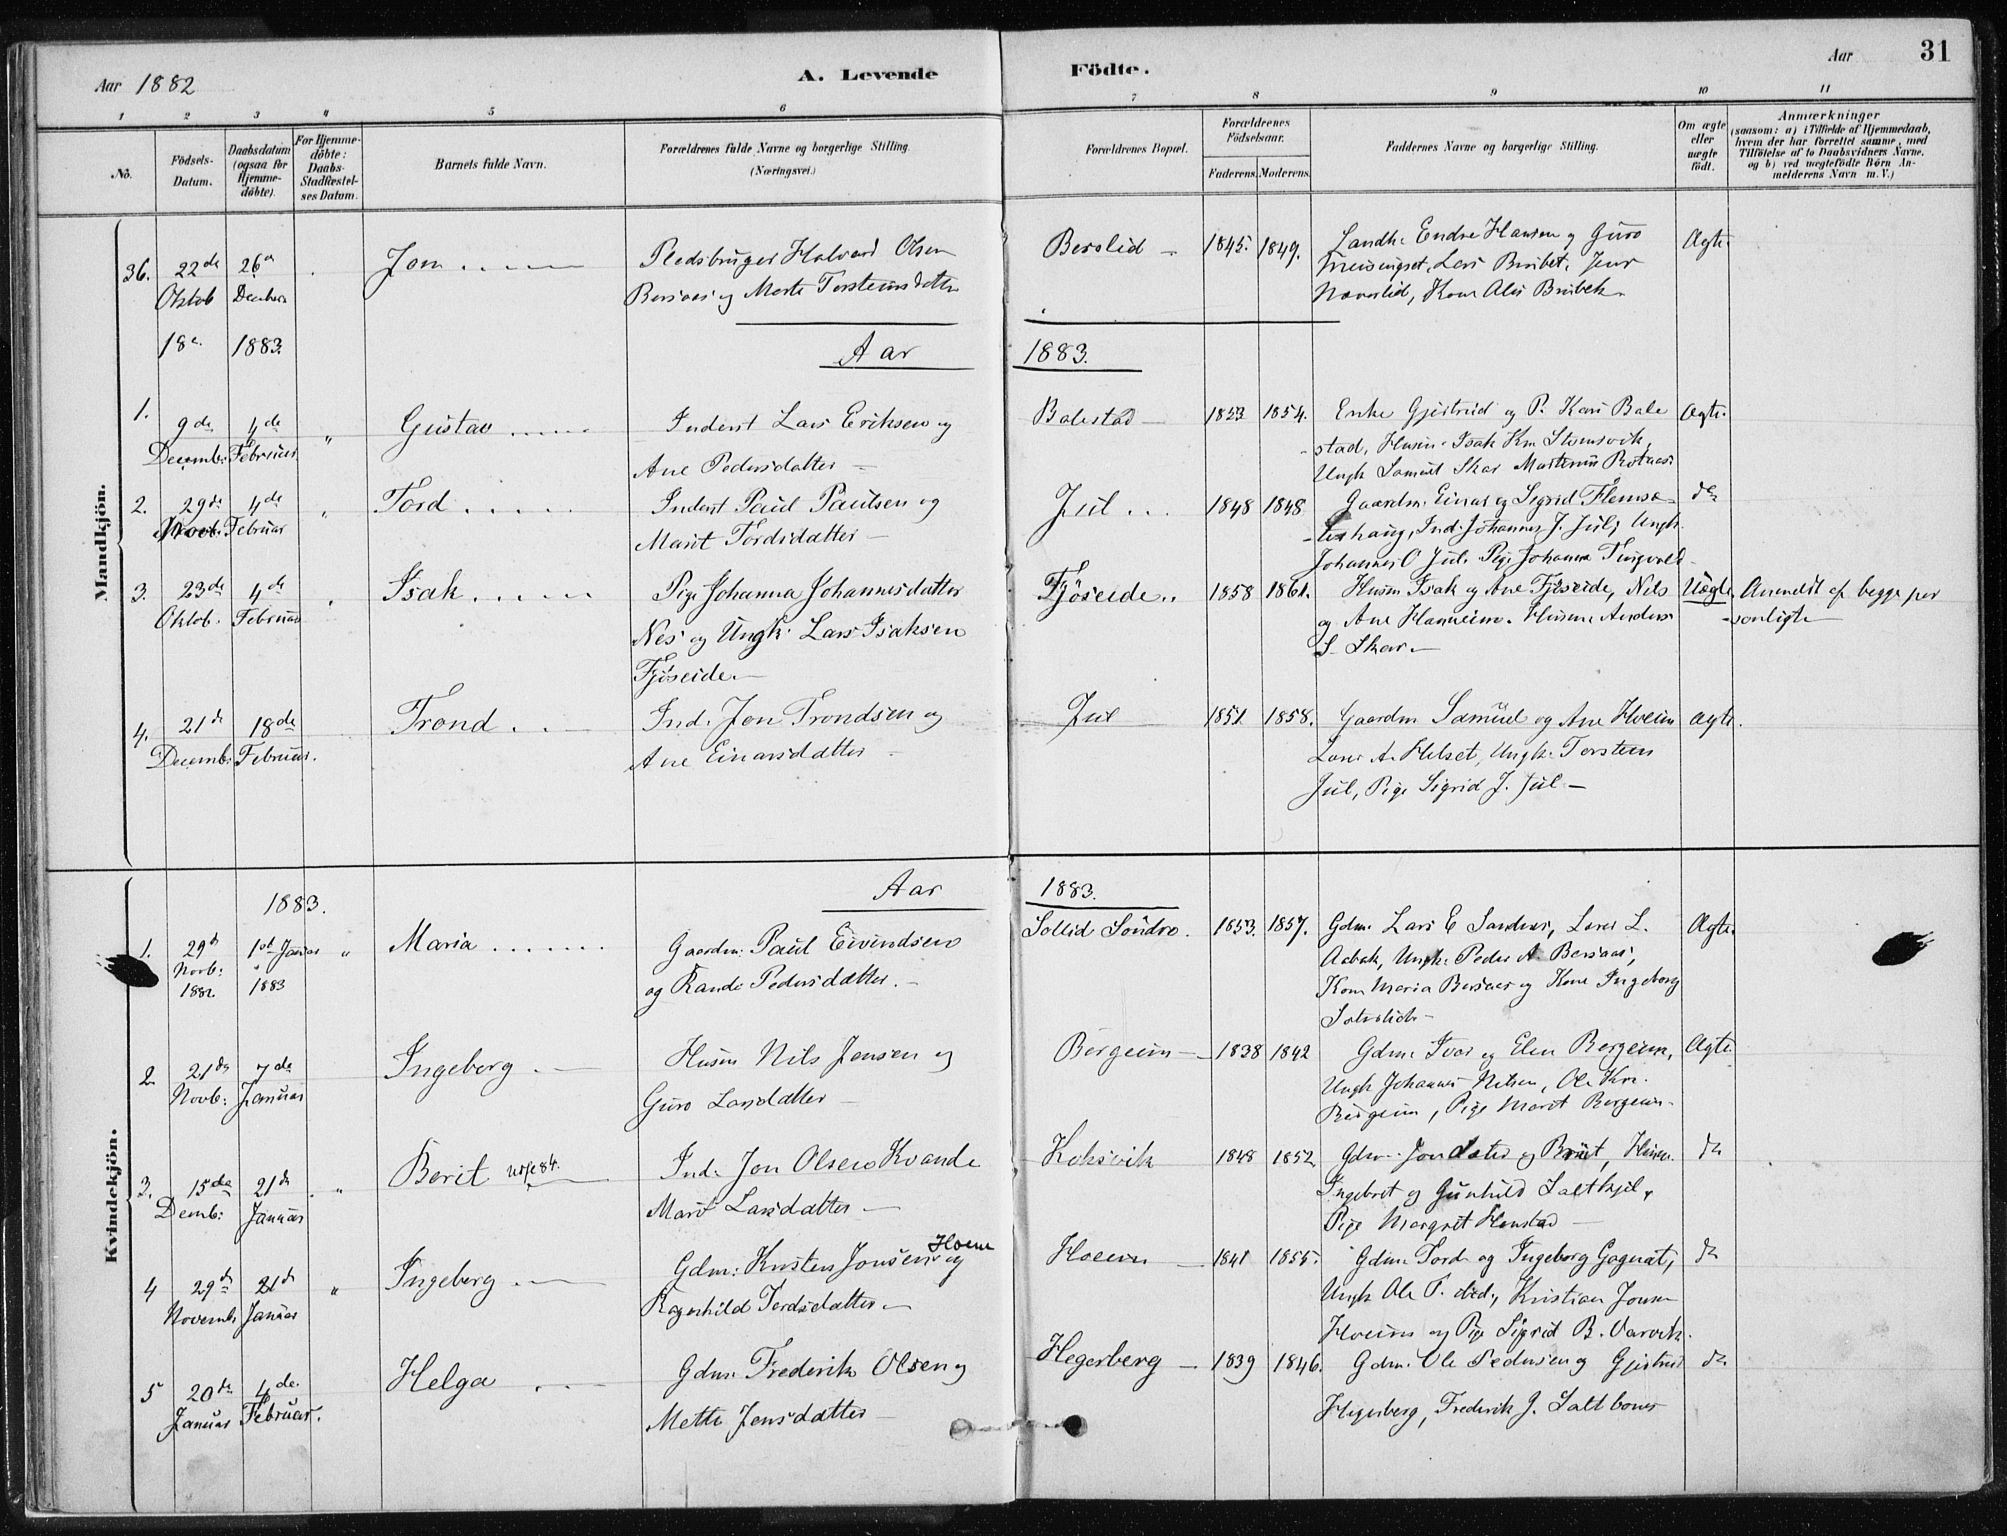 Aar 1882
A. Levende Födte.
Aar
31
1 2 3 4 5 6 7 8 9 10 11
No.
Födsels-Datum.
Daabsdatum (ogsaa for Hjemme-döbte).
For Hjemme-döbte: Daabs-Stadfæstel-ses Datum.
Barnets fulde Navn.
Forældrenes fulde Navne og borgerlige Stilling. (Næringsvei.)
Forældrenes Bopæl.
Forældrenes Födselsaar.
Faderens. Moderens.
Faddernes Navne og borgerlige Stilling.
Om ægte eller uægte födt.
Anmærkninger
(saasom: a) i Tilfælde af Hjemmedaab,
hvem der har forrettet samme, med
Tilföielse af to Daabsvidners Navne,
og b) ved uægtefödte Börn An-
melderens Navn m. V.)
Mandkjön.
36. 22de 26de Jon Pladsbruger Halvard Olsen Berslid 1845. 1849. Landh. Endre Hansen og Guro Ægte.
Oktob Decbr og Marte Torsteinsdatter Lars
Kone
18 1883.
Aar 1883.
1. 9de 4de " Gustav Inderst Lars Eriksen og Balestad 1853 1854. Enke Gjertrud og P. Kari Bale Ægte.
Decemb: Februar Ane Pedersdatter - stad, Husm. Isak Kn. Stomsvik,
Ungk Samuel Skar
2. 29de 4de " Tord Inderst Paul Paulsen og Jul 1848 1848 Gaardm. Einar og Sigrid Flemsæ- do
Novb. Februar Marit Tordsdatter - terhaug, Ind. Johannes J. Jul, Ungk.
Johannes O Jul. Pige Johanna
3. 23de 4de Isak Pige Johanna Johannesdatter Fjöseide 1858 1861. Husm Isak og Ane Fjöseide, Nils Uægte Anmeldt af begge per
Oktob. Februar Nes og Ungk. Lars Isaksen og Ane Husm. Anders -sonligt
Fjöseide. S. Skar.
4. 21de 18de Trond Ind. Jon Trondsen og Jul 1851 1858. Gaardm Samuel og Ane Hoem ægte.
Decemb: Februar. Ane Einarsdatter A. Helset, Ungk. Torsten
Jul, Pige Sigrid J. Jul
Kvindekjön.
1883.
Aar 1883.
1. 29de 1st Januar " Maria Gaardm: Paul Eivindsen Sollid Söndre. 1853. 1857. Gdm. Lars E Ægte.
Novb: 1882. 1883 og Rande Pedersdatter. Aabak, Ungk. Peder A.
Kone Maria og Kone Ingeborg
2. 21de 7de Ingeborg Husm Nils Jensen og Bergeim 1838 1842 Gdm. Ivar og Elen Bergeim, Ægte
Novb: Januar Guro Larsdatter Ungk Johannes Nilsen, Ole Kn.
Bergeim, Pige Marit Bergeim
3. 15de 21de " Berit Ind. Jon Olsen Kvande Koksvik 1848 1852 Gdm. Jon og Brit, Husm. do
Decmb: Januar Marit Larsdatter Ingebret og Gunhild
Pige Margret
4 29de 21de " Ingeborg Gdm: Kristen Jonsen Hoem og Hoem 1841 1855. Gdm. Tord og Ingeborg Gagnat, do
Novemb: Januar Ragnhild Tordsdatter Ungk Ole P. Kristian Jonsen
Hoem og Pige Sigrid B. Varvik.
5 20de 4de Helga Gdm. Frederik Olsen og Hegerberg 1839 1846. Gdm. Ole Pedersen og Gjertrud do
Januar Februar. Mette Jensdatter Hegerberg, Frederik J.